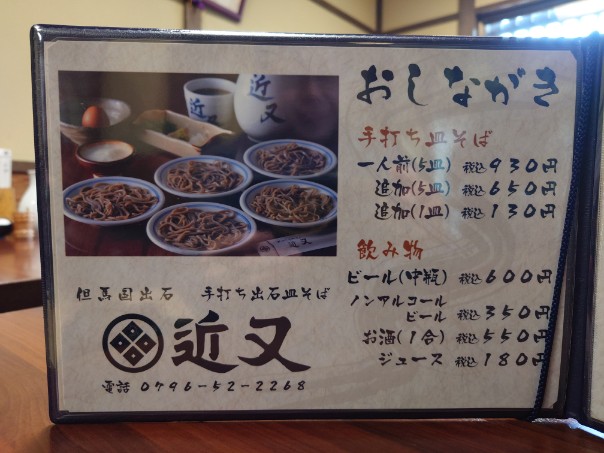 近又
近又
近又
但馬国出石 手打ち出石皿そば
近又
電話 0796-52-2268
おしながき
手打ち皿そば
一人前(5皿) 税込930円
追加(5皿) 税込650円
追加(1皿) 税込130円
飲み物
ビール(中瓶) 税込600円
ノンアルコール
ビール 税込350円
お酒(1合) 税込550円
ジュース 税込180円